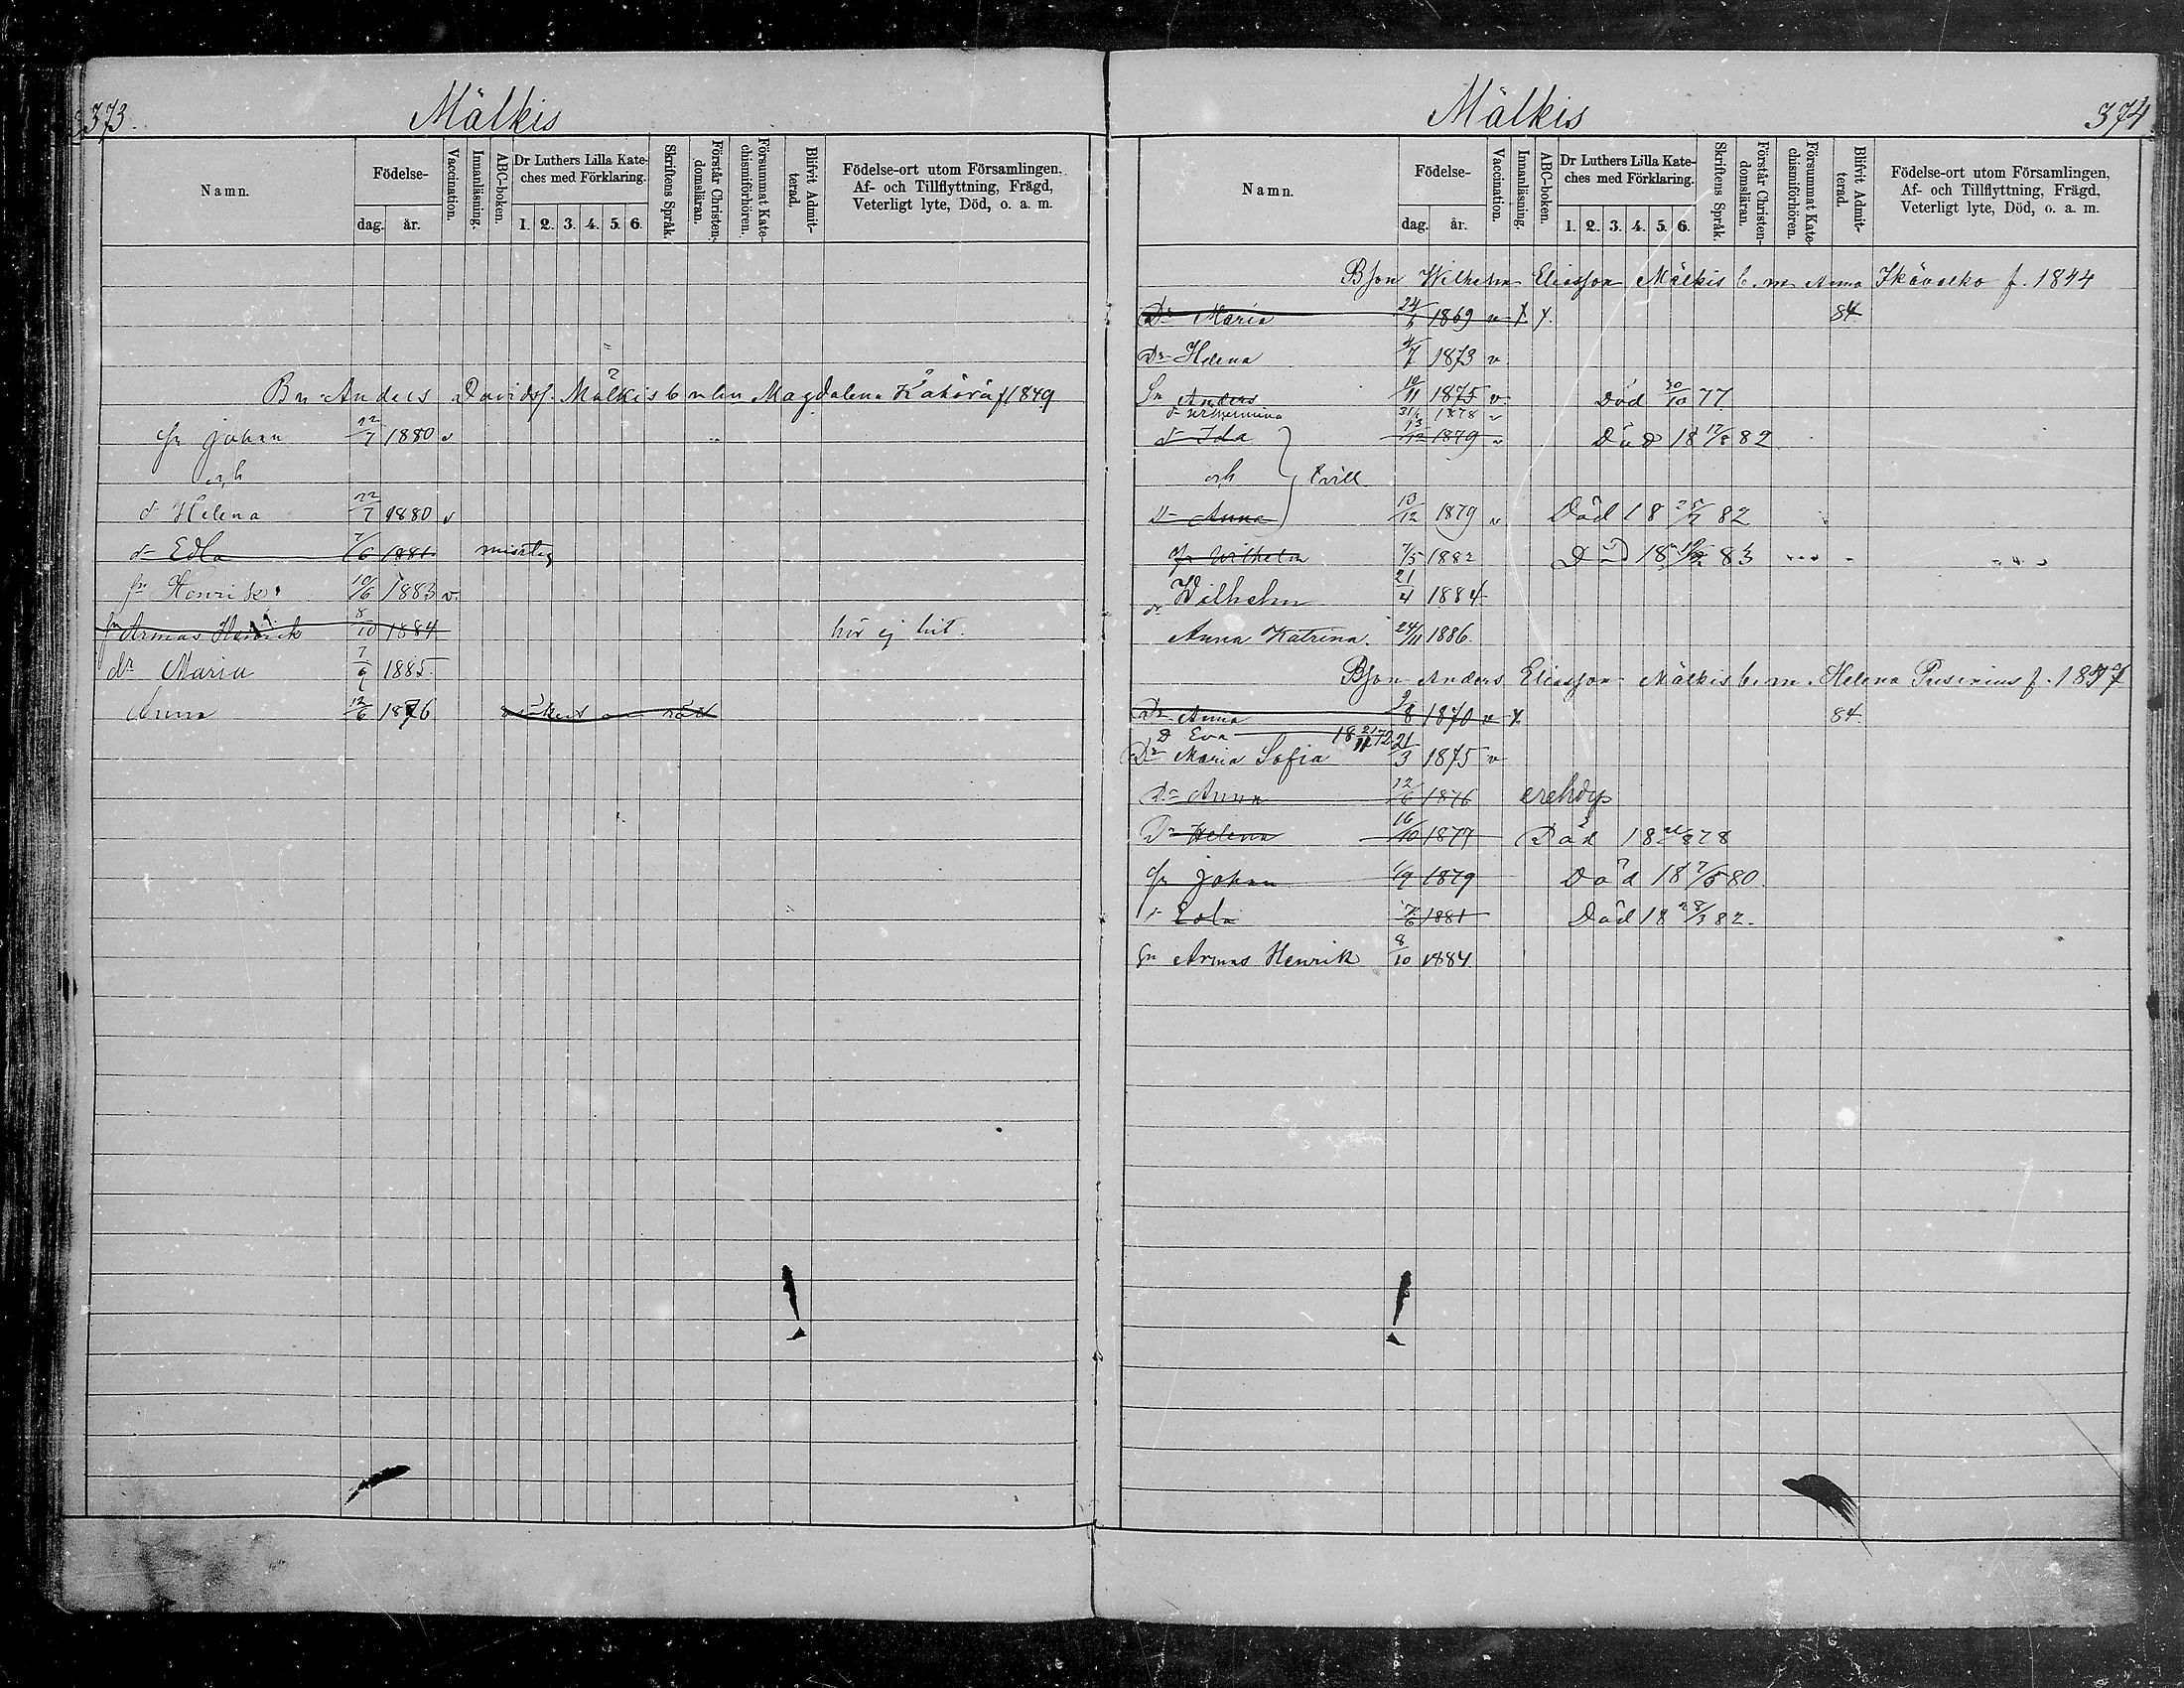 373.
Mälkis
Namn.
Födelse-
dag.
år.
Vaccination.
Innanläsning.
ABC-boken.
Dr Luthers Lilla Kate-
ches med Förklaring.
1. 2. 3. 4. 5. 6.
Skriftens Språk.
Förstår Christen-
domsläran.
Försummat Kate-
chismiförhören.
Blifvit Admit-
terad.
Födelse-ort utom Församlingen,
Af- och Tillflyttning, Frägd,
Veterligt lyte, Död, o. a. m.
Anders Davidsf. Mälkis Magdalena 1849
Johan 22/7 1880 v
och
d Helena 22/7 1880 v
d Edla 7/6 1881
Henrik 10/6 1883 v.
Armas Henrik 8/10 1884 hör ej hit.
dr Maria 1885.
Anna 12/6 1876
Mälkis
374
Namn.
Födelse-
dag.
år.
Vaccination.
Innanläsning.
ABC-boken.
Dr Luthers Lilla Kate-
ches med Förklaring.
1. 2. 3. 4. 5. 6.
Skriftens Språk.
Förstår Christen-
domsläran.
Försummat Kate-
chismiförhören.
Blifvit Admit-
terad.
Födelse-ort utom Församlingen,
Af- och Tillflyttning, Frägd,
Veterligt lyte, Död, o. a. m.
Bson Wilhelm Eliasson Mälkis b. m. Anna Ikävalko f. 1844
Dr Maria 1869 v 84.
Dr Helena 1873 v
Sn Anders 10/11 1875 v Död 30/10 77
1878 v
d Ida 13/12 1879 v Död 18 17/8 82
och tvill
d Anna 13/12 1879 v Död 18 82
Wilhelm 7/5 1882 Död 18 83
Wilhelm 21/4 1884
dr
Anna Katrina. 24/11 1886.
Bson Anders Eliasson Mälkis b. m. Helena Pusenius f.
Dr Anna 1870 v 84.
D Eva
Dr Maria Sofia 21/3 1875 v
Dr Anna 12/6 1876 erehdys
Dr Helena 16/10 1877 Död 18 78
Johan 1879 Död 18 7/5 80.
Edla 7/6 1881 Död 18 28/3 82.
Armas Henrik 8/10 1884